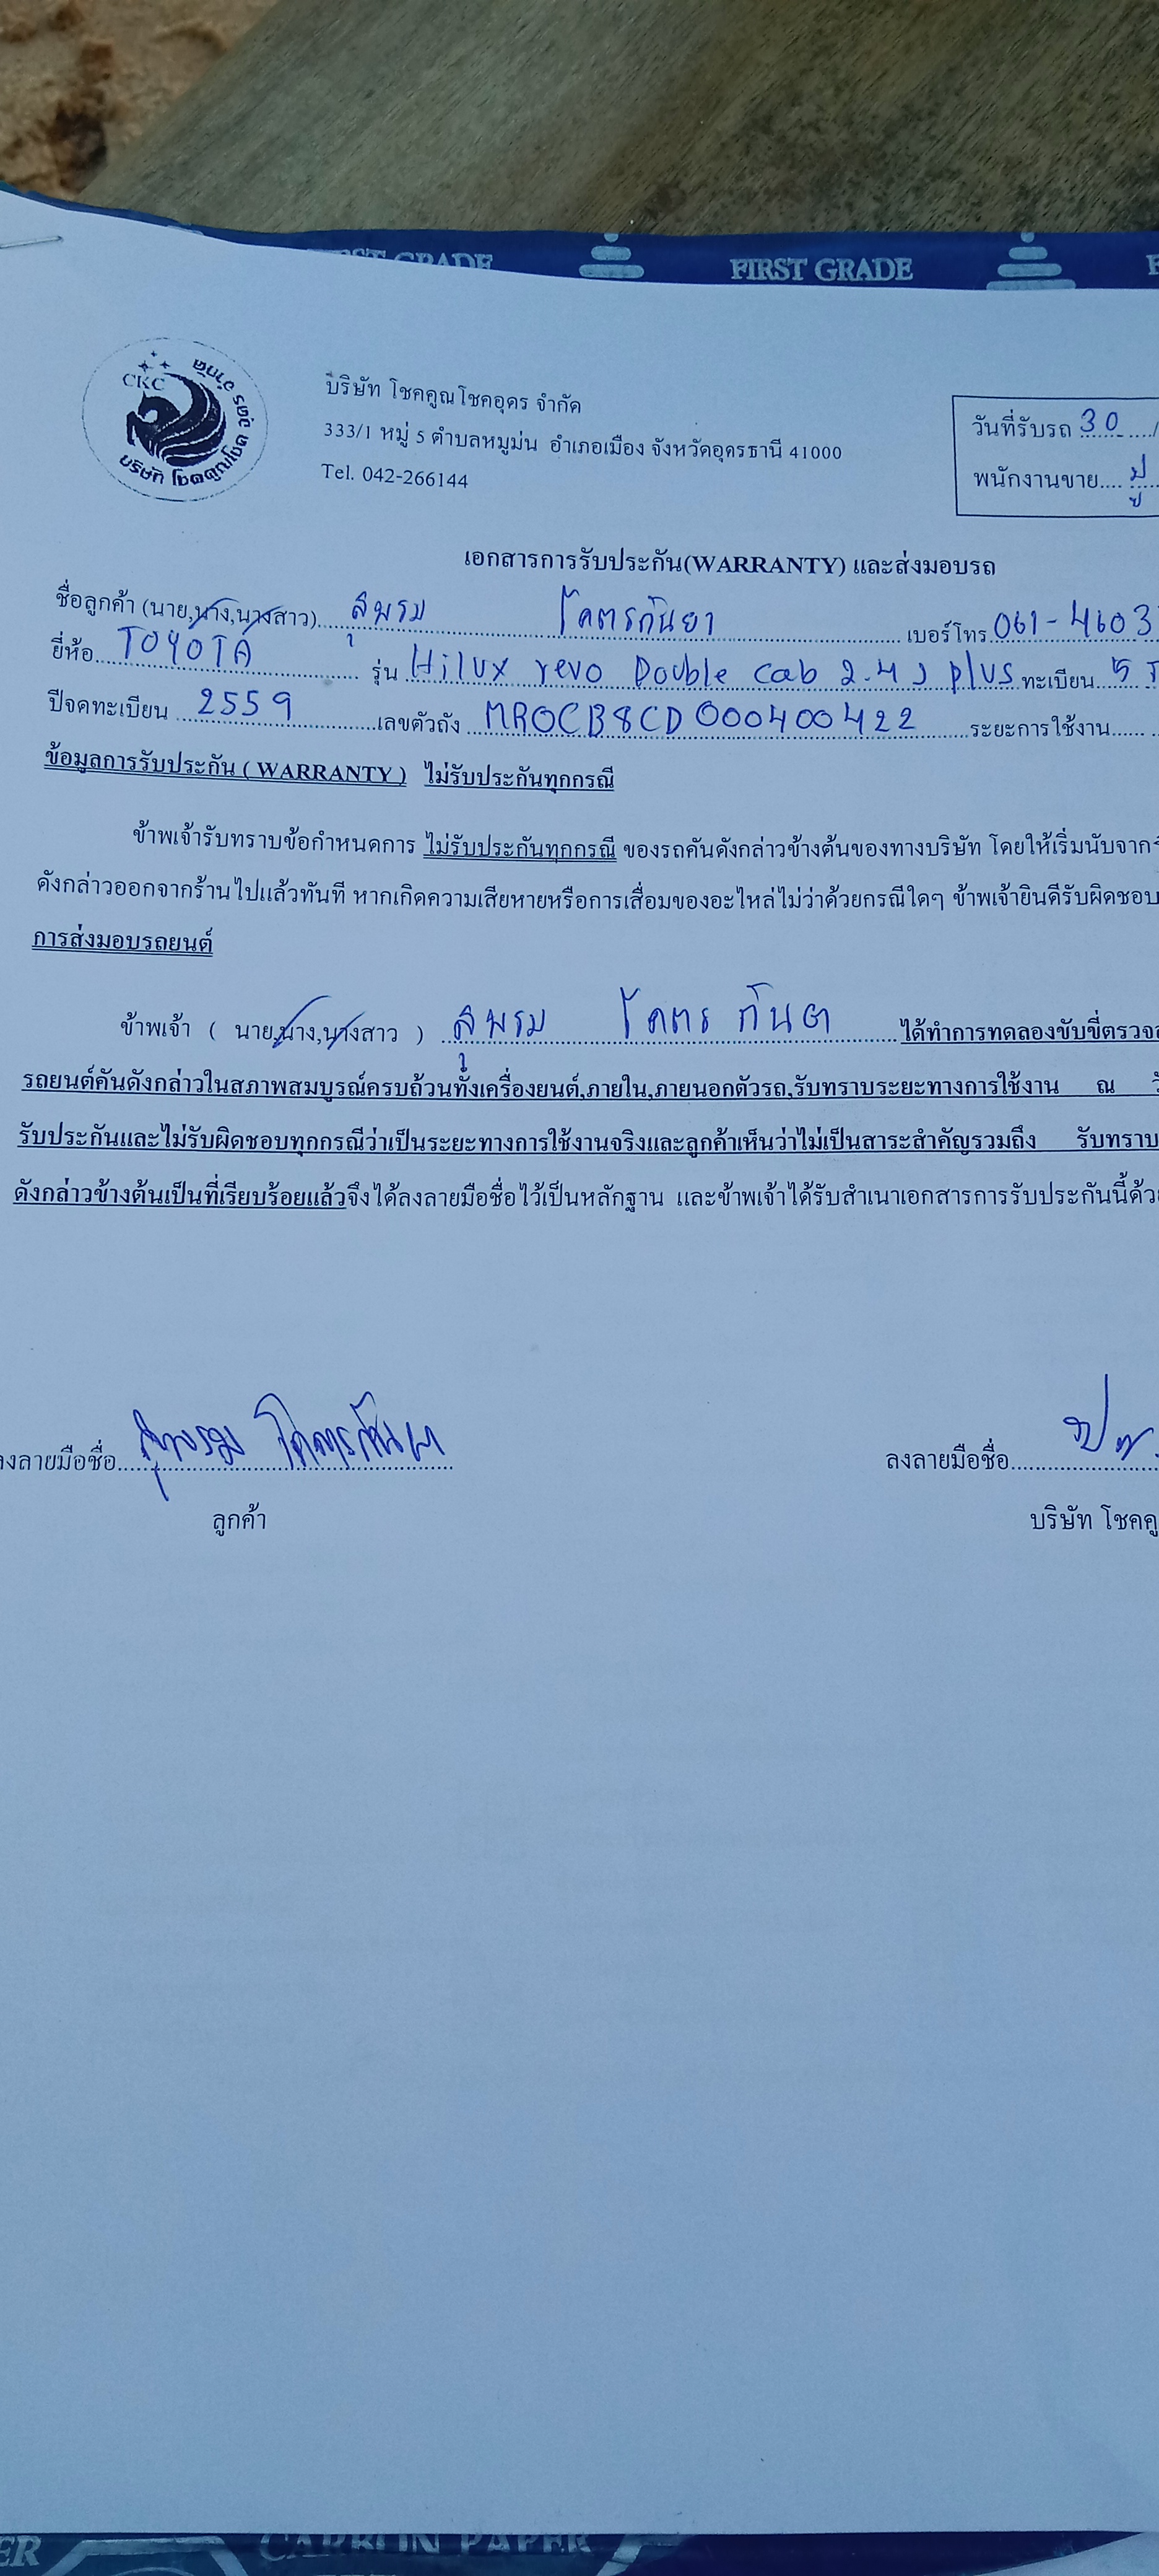 FIRST GRADE
FIRST GRADE
CKC
บริษัท โชคคูณโชค อุดร จำกัด
บริษัท โชคคูณโชคอุดร จำกัด
333/1 หมู่ 5 ตำบลหมูม่น อำเภอเมือง จังหวัดอุดรธานี 41000
Tel. 042-266144
วันที่รับรถ 30 /
พนักงานขาย.... ปู
เอกสารการรับประกัน(WARRANTY) และส่งมอบรถ
ชื่อลูกค้า (นาย,นาง,นางสาว) สุพรม โคตรกันยา เบอร์โทร 061-4603
ยี่ห้อ TOYOTA รุ่น Hilux revo Double cab 2.4 J plus ทะเบียน 5
ปีจดทะเบียน 2559 เลขตัวถัง MR0CB8CD000400422 ระยะการใช้งาน
ข้อมูลการรับประกัน ( WARRANTY ) ไม่รับประกันทุกกรณี
ข้าพเจ้ารับทราบข้อกำหนดการ ไม่รับประกันทุกกรณี ของรถคันดังกล่าวข้างต้นของทางบริษัท โดยให้เริ่มนับจาก
ดังกล่าวออกจากร้านไปแล้วทันที หากเกิดความเสียหายหรือการเสื่อมของอะไหล่ไม่ว่าด้วยกรณีใดๆ ข้าพเจ้ายินดีรับผิดชอบ
การส่งมอบรถยนต์
ข้าพเจ้า ( นาย,นาง,นางสาว ) สุพรม โคตรกันยา ได้ทำการทดลองขับขี่ตรวจ
รถยนต์คันดังกล่าวในสภาพสมบูรณ์ครบถ้วนทั้งเครื่องยนต์,ภายใน,ภายนอกตัวรถ,รับทราบระยะทางการใช้งาน ณ
รับประกันและไม่รับผิดชอบทุกกรณีว่าเป็นระยะทางการใช้งานจริงและลูกค้าเห็นว่าไม่เป็นสาระสำคัญรวมถึง รับทราบ
ดังกล่าวข้างต้นเป็นที่เรียบร้อยแล้วจึงได้ลงลายมือชื่อไว้เป็นหลักฐาน และข้าพเจ้าได้รับสำเนาเอกสารการรับประกันนี้ด้วย
ลงลายมือชื่อ สุพรม โคตรกันยา ลงลายมือชื่อ
ลูกค้า บริษัท โชคคู
CARBON PAPER